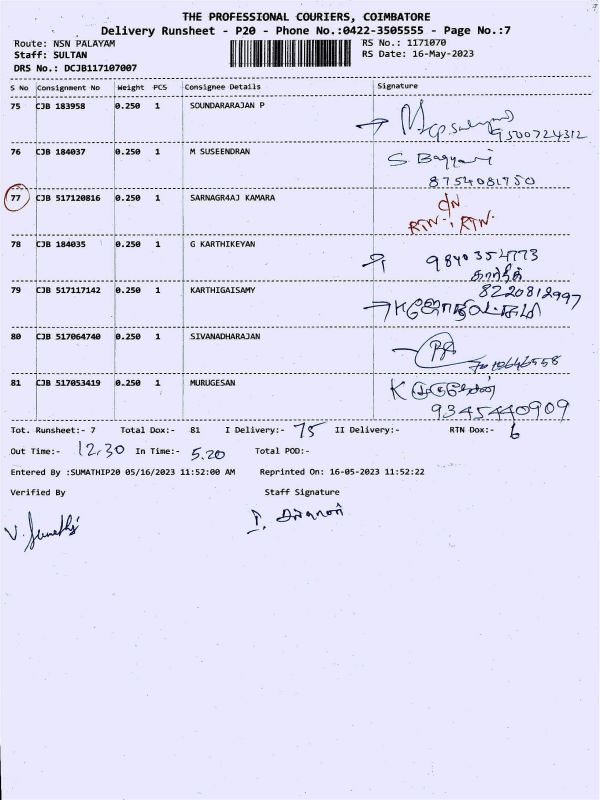 THE PROFESSIONAL COURIERS, COIMBATORE
Delivery Runsheet - P20 - Phone No.:0422-3505555 - Page No.:7
Route: NSN PALAYAM RS No.: 1171070
Staff: SULTAN RS Date: 16-May-2023
DRS No.: DCJB117107007
S No Consignment No Weight PCS Consignee Details Signature
75 CJB 183958 0.250 1 SOUNDARARAJAN P
9500724312
76 CJB 184037 0.250 1 M SUSEENDRAN S. Bagyari
8754081950
77 CJB 517120816 0.250 1 SARNAGR4AJ KAMARA D/N
RTN. RTN.
78 CJB 184035 0.250 1 G KARTHIKEYAN 9840354773
கார்த்தி
79 CJB 517117142 0.250 1 KARTHIGAISAMY 8220812997
80 CJB 517064740 0.250 1 SIVANADHARAJAN
81 CJB 517053419 0.250 1 MURUGESAN K முருகேசன்
9345440909
Tot. Runsheet:- 7 Total Dox:- 81 I Delivery:- 75 II Delivery:- RTN Dox:- 6
Out Time:- 12.30 In Time:- 5.20 Total POD:-
Entered By :SUMATHIP20 05/16/2023 11:52:00 AM Reprinted On: 16-05-2023 11:52:22
Verified By Staff Signature
V. Sumathi